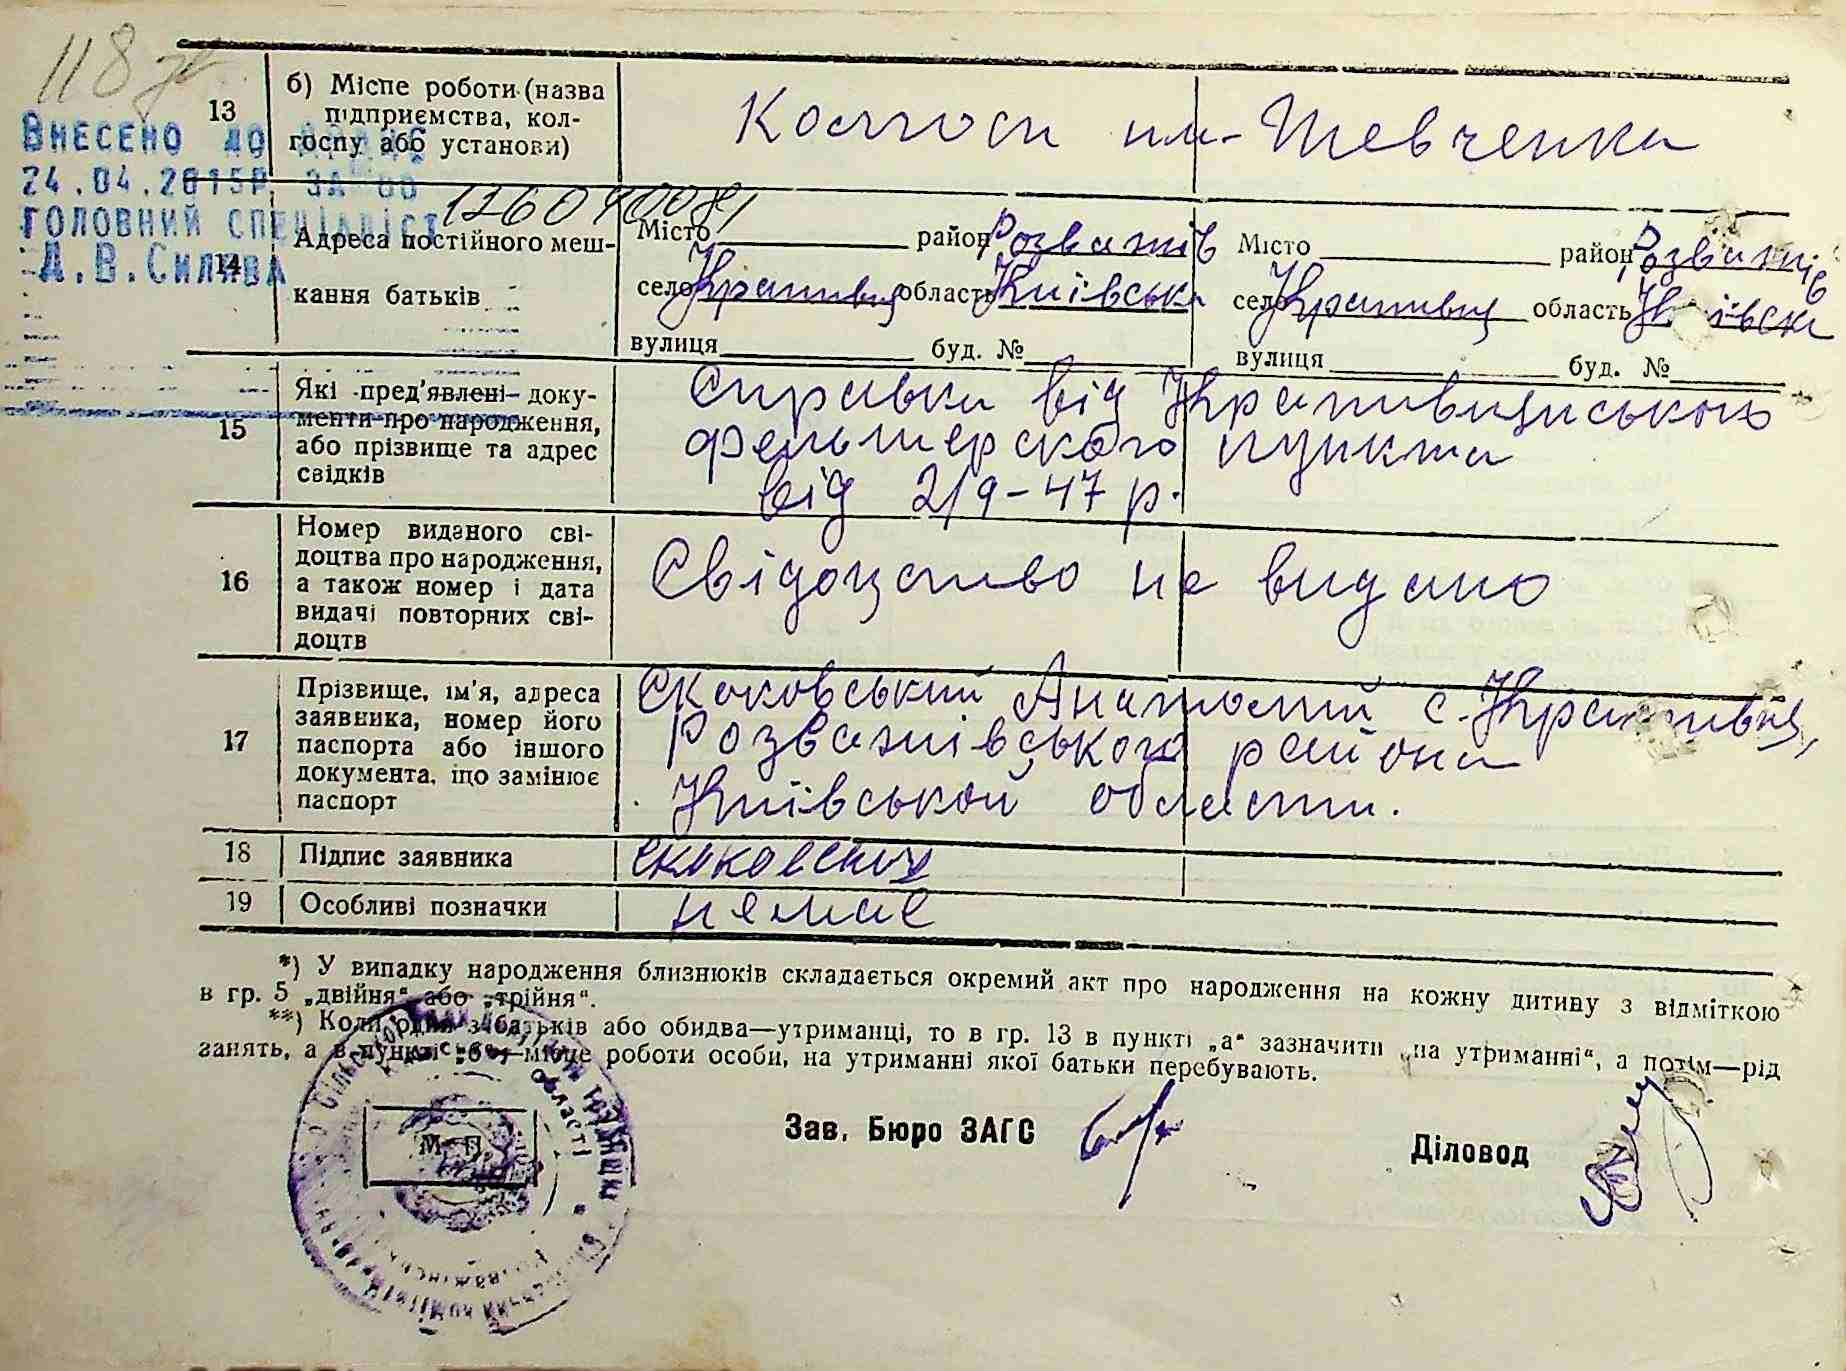 118
ВНЕСЕНО ДО
24.04.2015Р. ЗА
ГОЛОВНИЙ СПЕЦІАЛІСТ
13
б) Місце роботи (назва
підприємства, кол-
госпу або установи)
Колгосп им. Шевченка
14
Адреса постійного меш-
кання батьків
Місто район Розважів
село Крапивня область Київськ
вулиця буд. №
Місто район Розважів
село Крапивня область Київськ
вулиця буд. №
15
Які пред'явлені доку-
менти про народження,
або прізвище та адрес
свідків
Справка від
фельшерского пункта
від 2/9-47 р.
16
Номер виданого сві-
доцтва про народження,
а також номер і дата
видачі повторних сві-
доцтв
Свідоцтво не видано
17
Прізвище, ім'я, адреса
заявника, номер його
паспорта або іншого
документа, що замінює
паспорт
Скоковський Анатолий с. Крапивня,
Розважівського района
Київськой области.
18
Підпис заявника
19
Особливі позначки
немає
*) У випадку народження близнюків складається окремий акт про народження на кожну дитину з відміткою
в гр. 5 „двійня“ або „трійня“.
**) Коли один з батьків або обидва—утриманці, то в гр. 13 в пункті „а“ зазначити „на утриманні“, а потім—рід
занять, а в пункті „б“—місце роботи особи, на утриманні якої батьки перебувають.
М. П.
Зав. Бюро ЗАГС
Діловод